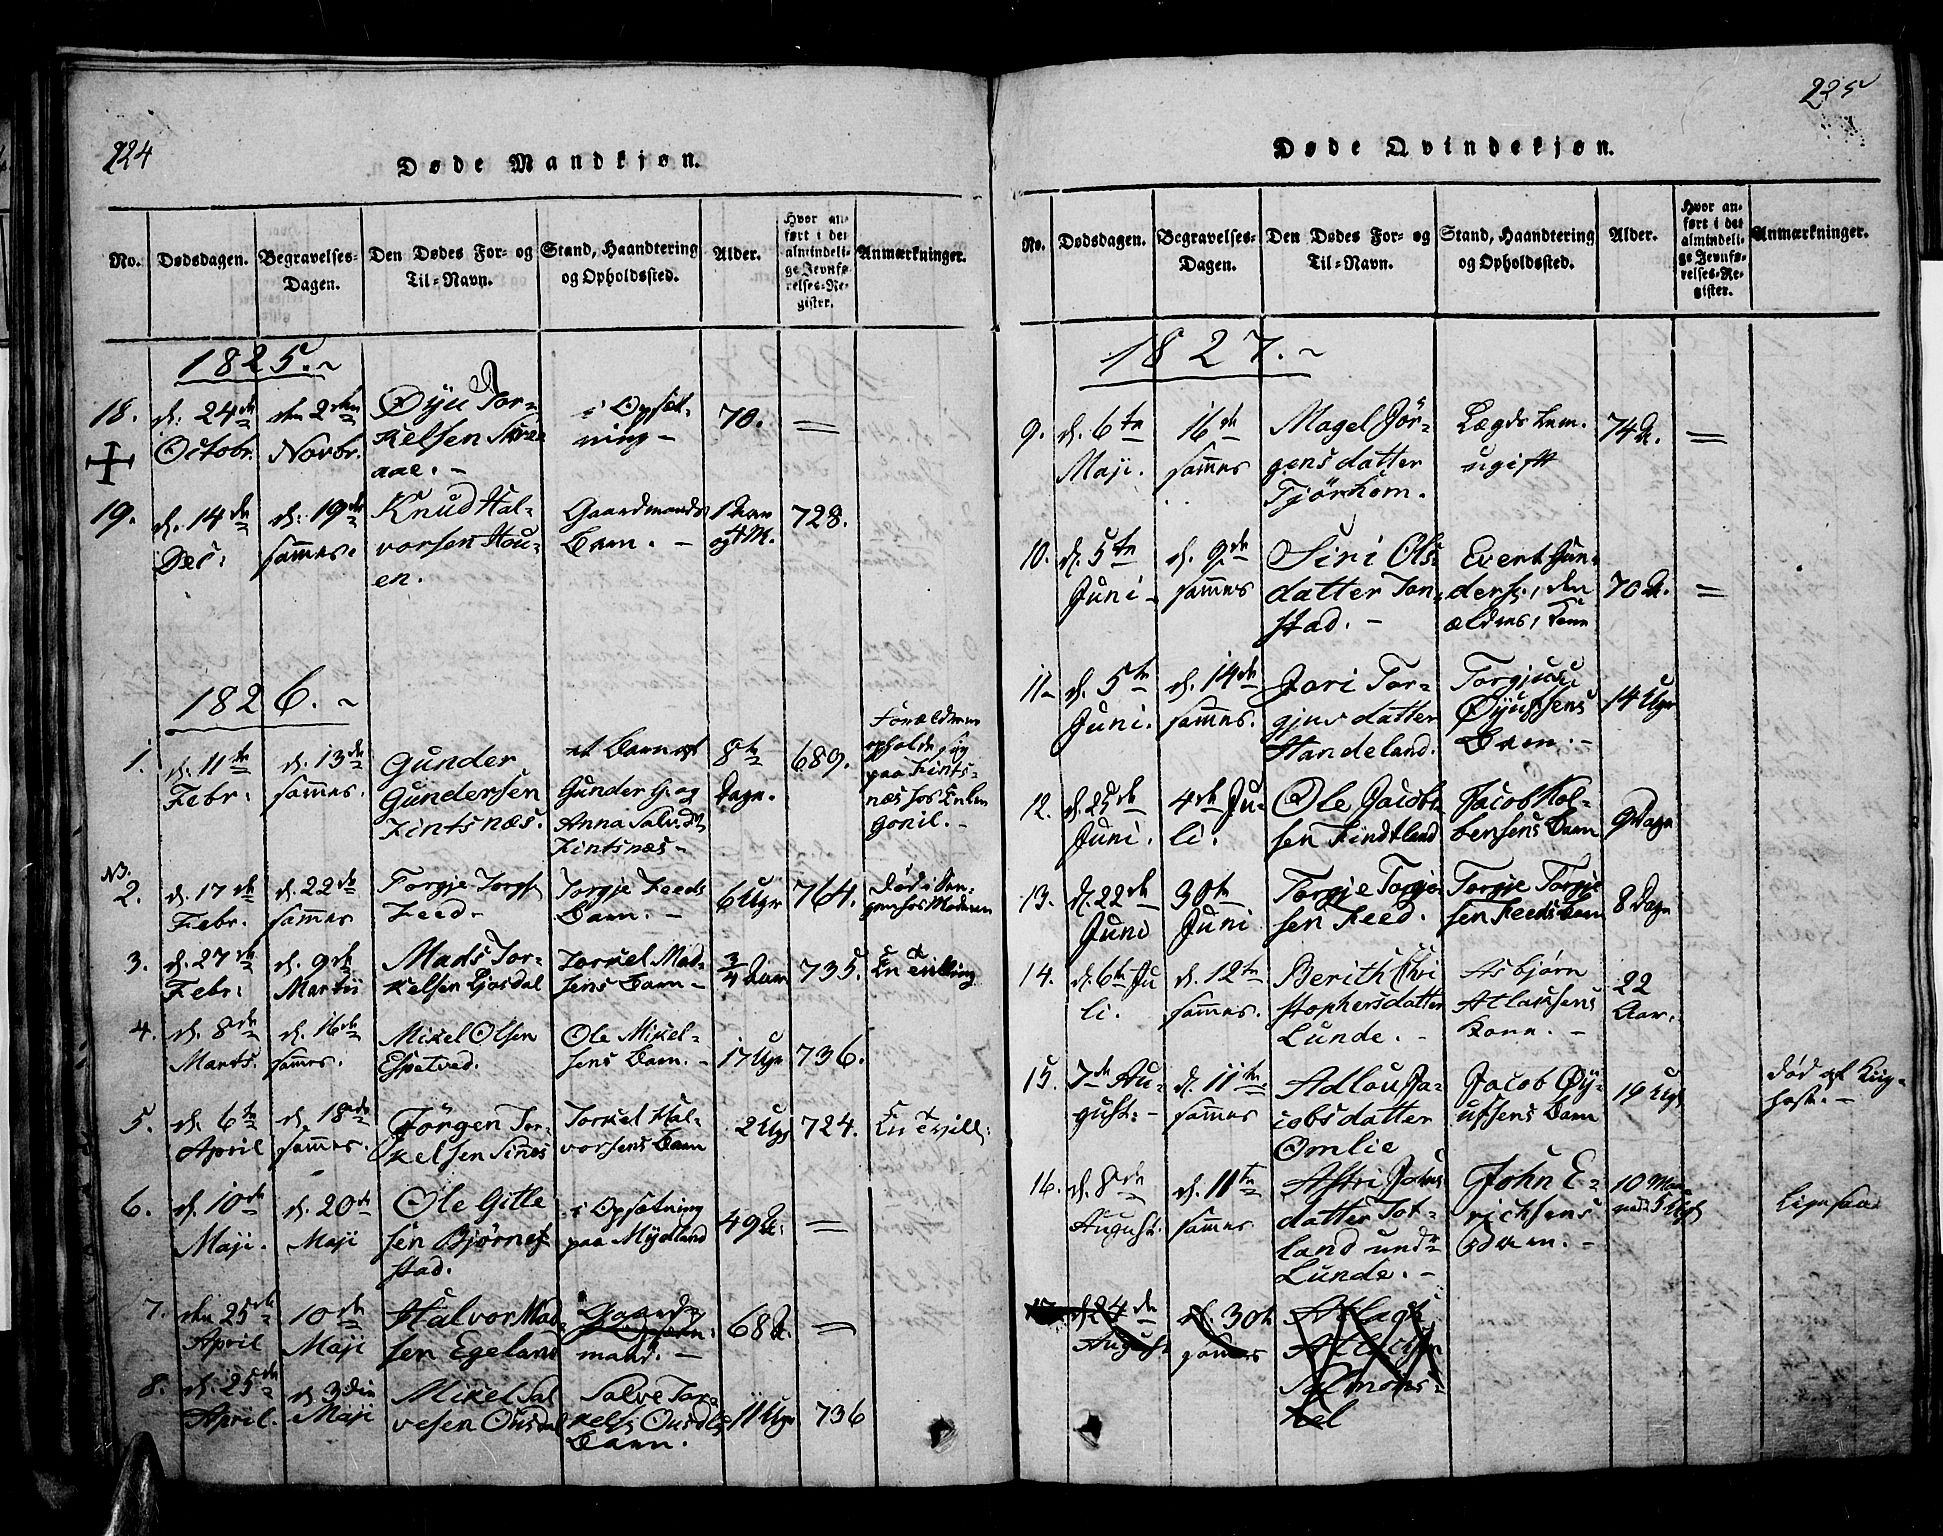 224
Døde Mandkjøn.
No.
Dødsdagen.
Begravelses-
Dagen.
Den Dødes For- og
Til-Navn.
Stand, Haandtering
og Opholdssted.
Alder.
Hvor an-
ført i det
almindeli-
ge Jevnfø-
relses-Re-
gister.
Anmærkninger.
1825.
18.
d: 24de
Octobr.
den 2den
Novbr.
Øyu Tor-
kelsen
aae.
i Opfost-
ning
70.
=
19.
d. 14de
Dec:
d. 19de
sammes.
Knud Hal-
vorsen Hou-
en.
Gaardmands
Barn.
1 Aar
og 4 M.
728.
1826.
1.
d. 11te
Febr:
d. 13de
sammes.
Gunder
Gundersen
Fintsnæs.
et Barn af
Gunder G. og
Anna Salvesd.
Fintsnæs
8te
Dage.
689.
Forældrene
opholde sig
paa Fints-
næs hos Enken
Gonil.
NB.
2.
d. 17de
Febr.
d. 22de
sammes
Torgje Torgs.
Feed.
Torgje Feeds
Barn.
6 Uger
764.
3.
d. 27de
Febr:
d. 9de
Martii
Mads Tor-
kelsen Liosdal
Torkel Mad-
sens Barn
3/4 Aar
735.
En Tvilling
4.
d. 8de
Marts.
d. 16de
sammes.
Mikel Olsen
Espetved.
Ole Mikel-
sens Barn.
17 Uger
736.
5.
d. 6te
April
d. 18de
sammes.
Jörgen Tor-
kelsen Sines
Torkel Hal-
vorsens Barn
2 Uger
724.
En Tvill:
6.
d. 10de
Maji.
d. 20de
Maji
Ole Gitle
sen Bjørne-
stad.
i Opfostning
paa Mydland
49 A.
=
7.
den 25de
April
10de
Maji
Halvor Mad-
sen Egeland
Gaard-
mand.
68 A.
=
8.
d. 25de
April.
d. 3die
Maji
Mikel Sal
vesen Ousdal
Salve Tor-
kels. Ousdals
Barn.
11 Uger
736
225
Døde Qvindekjøn.
No.
Dødsdagen.
Begravelses-
Dagen.
Den Dødes For- og
Til-Navn.
Stand, Haandtering
og Opholdssted.
Alder.
Hvor an-
ført i det
almindeli-
ge Jevnfø-
relses-Re-
gister.
Anmærkninger.
1827.
9.
d. 6te
Maji.
16de
sammes
Magel Jör-
gensdatter
Tjörhom.
Lægdslem.
ugift
74 A.
=
10.
d. 5te
Juni
d. 9de
sammes
Siri Ols-
datter Ton-
stad.
Evert Gun-
ders. den
ældres, Kone
70 A.
=
11
d. 5te
Juni.
d. 14de
sammes.
Jori Tor-
gjusdatter
Handeland.
Torgjus
Øyufsens
Barn.
14 Uger
12.
d. 25de
Juni.
4de Ju-
li.
Ole Jacob-
sen Findtland
Jacob Kol-
bensens Barn
9 Dage
13.
d. 22de
Juni
30te
Juni
Torgje Torgje
sen Feed.
Torgje Torgje
sen Feeds Barn
8 Dage
14.
d. 6te Ju
li.
d. 12te
sammes.
Berith Chri
stophersdatter
Lunde.
Asbjørn
Atlaksens
Kone.
22
Aar.
15.
7de Au-
gust.
d. 11te
sammes
Adlou Ja-
cobsdatter
Omlie
Jacob Øy-
ufsens Barn
19 Uger
død af Kig-
hoste.
16.
d. 8de
August.
d. 11te
sammes
Astri Johns
datter Tot-
land und
Lunde.
John E-
richsens
Barn.
10 Maa-
neder 5 Uger
Ligesaa
d. 24de
August
d. 30te
sammes
Atlag
Atlachsen
Salmons-